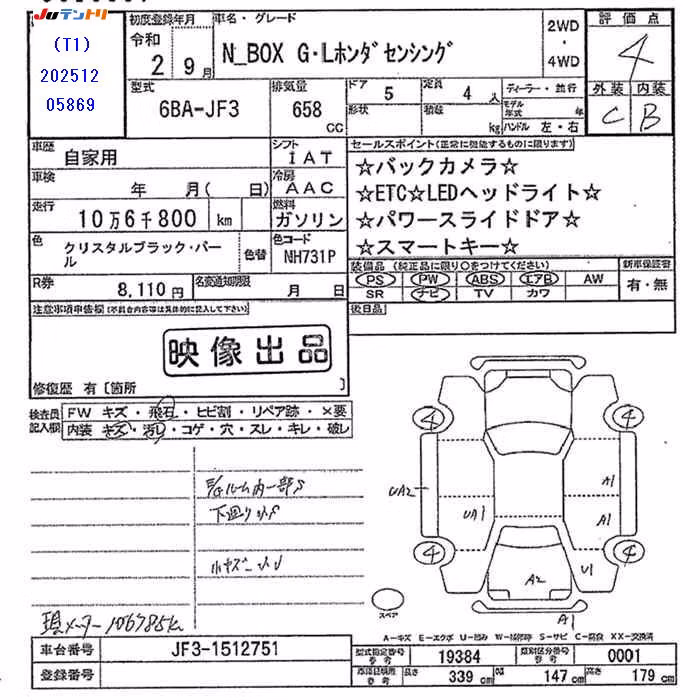 JUテントリ
(T1)
202512
05869
初度登録年月
令和
2年9月
車名・グレード
N_BOX G・Lホンダセンシング
2WD
・
4WD
評価点
4
外装 内装
C B
型式
6BA-JF3
排気量
658
CC
ドア 5
形状
定員 4 人
積載 kg
ディーラー・並行
モデル年式 年
ハンドル 左・右
車歴 自家用
シフト IAT
車検 年 月( 日)
冷房 AAC
走行 10万6千800 km
燃料 ガソリン
色 クリスタルブラック・パール
色替
色コード NH731P
R券 8,110円
名変通知期限 月 日
セールスポイント(正常に機能するものに限ります)
☆バックカメラ☆
☆ETC☆LEDヘッドライト☆
☆パワースライドドア☆
☆スマートキー☆
装備品 (純正品に限り○をつけてください)
PS PW ABS エアB AW
SR ナビ TV カワ
新車保証書
有・無
後日品
注意事項申告欄(不具合内容等は具体的に記入して下さい)
映像出品
修復歴 有〔箇所 〕
検査員記入欄
FW キズ・飛石・ヒビ割・リペア跡・×要
内装 キズ・汚れ・コゲ・穴・スレ・キレ・破レ
下廻り小S
小キズ・小U
現メーター106785km
4 4
UA2 UA1 A1
A1
4 4
U1
A2
A1
スペア
A-キズ E-エクボ U-凹み W-補修跡 S-サビ C-腐食 XX-交換済
車台番号 JF3-1512751
登録番号
型式指定番号 参考 19384
類別区分番号 参考 0001
車両証明用 参考 長さ 339 cm 幅 147 cm 高さ 179 cm